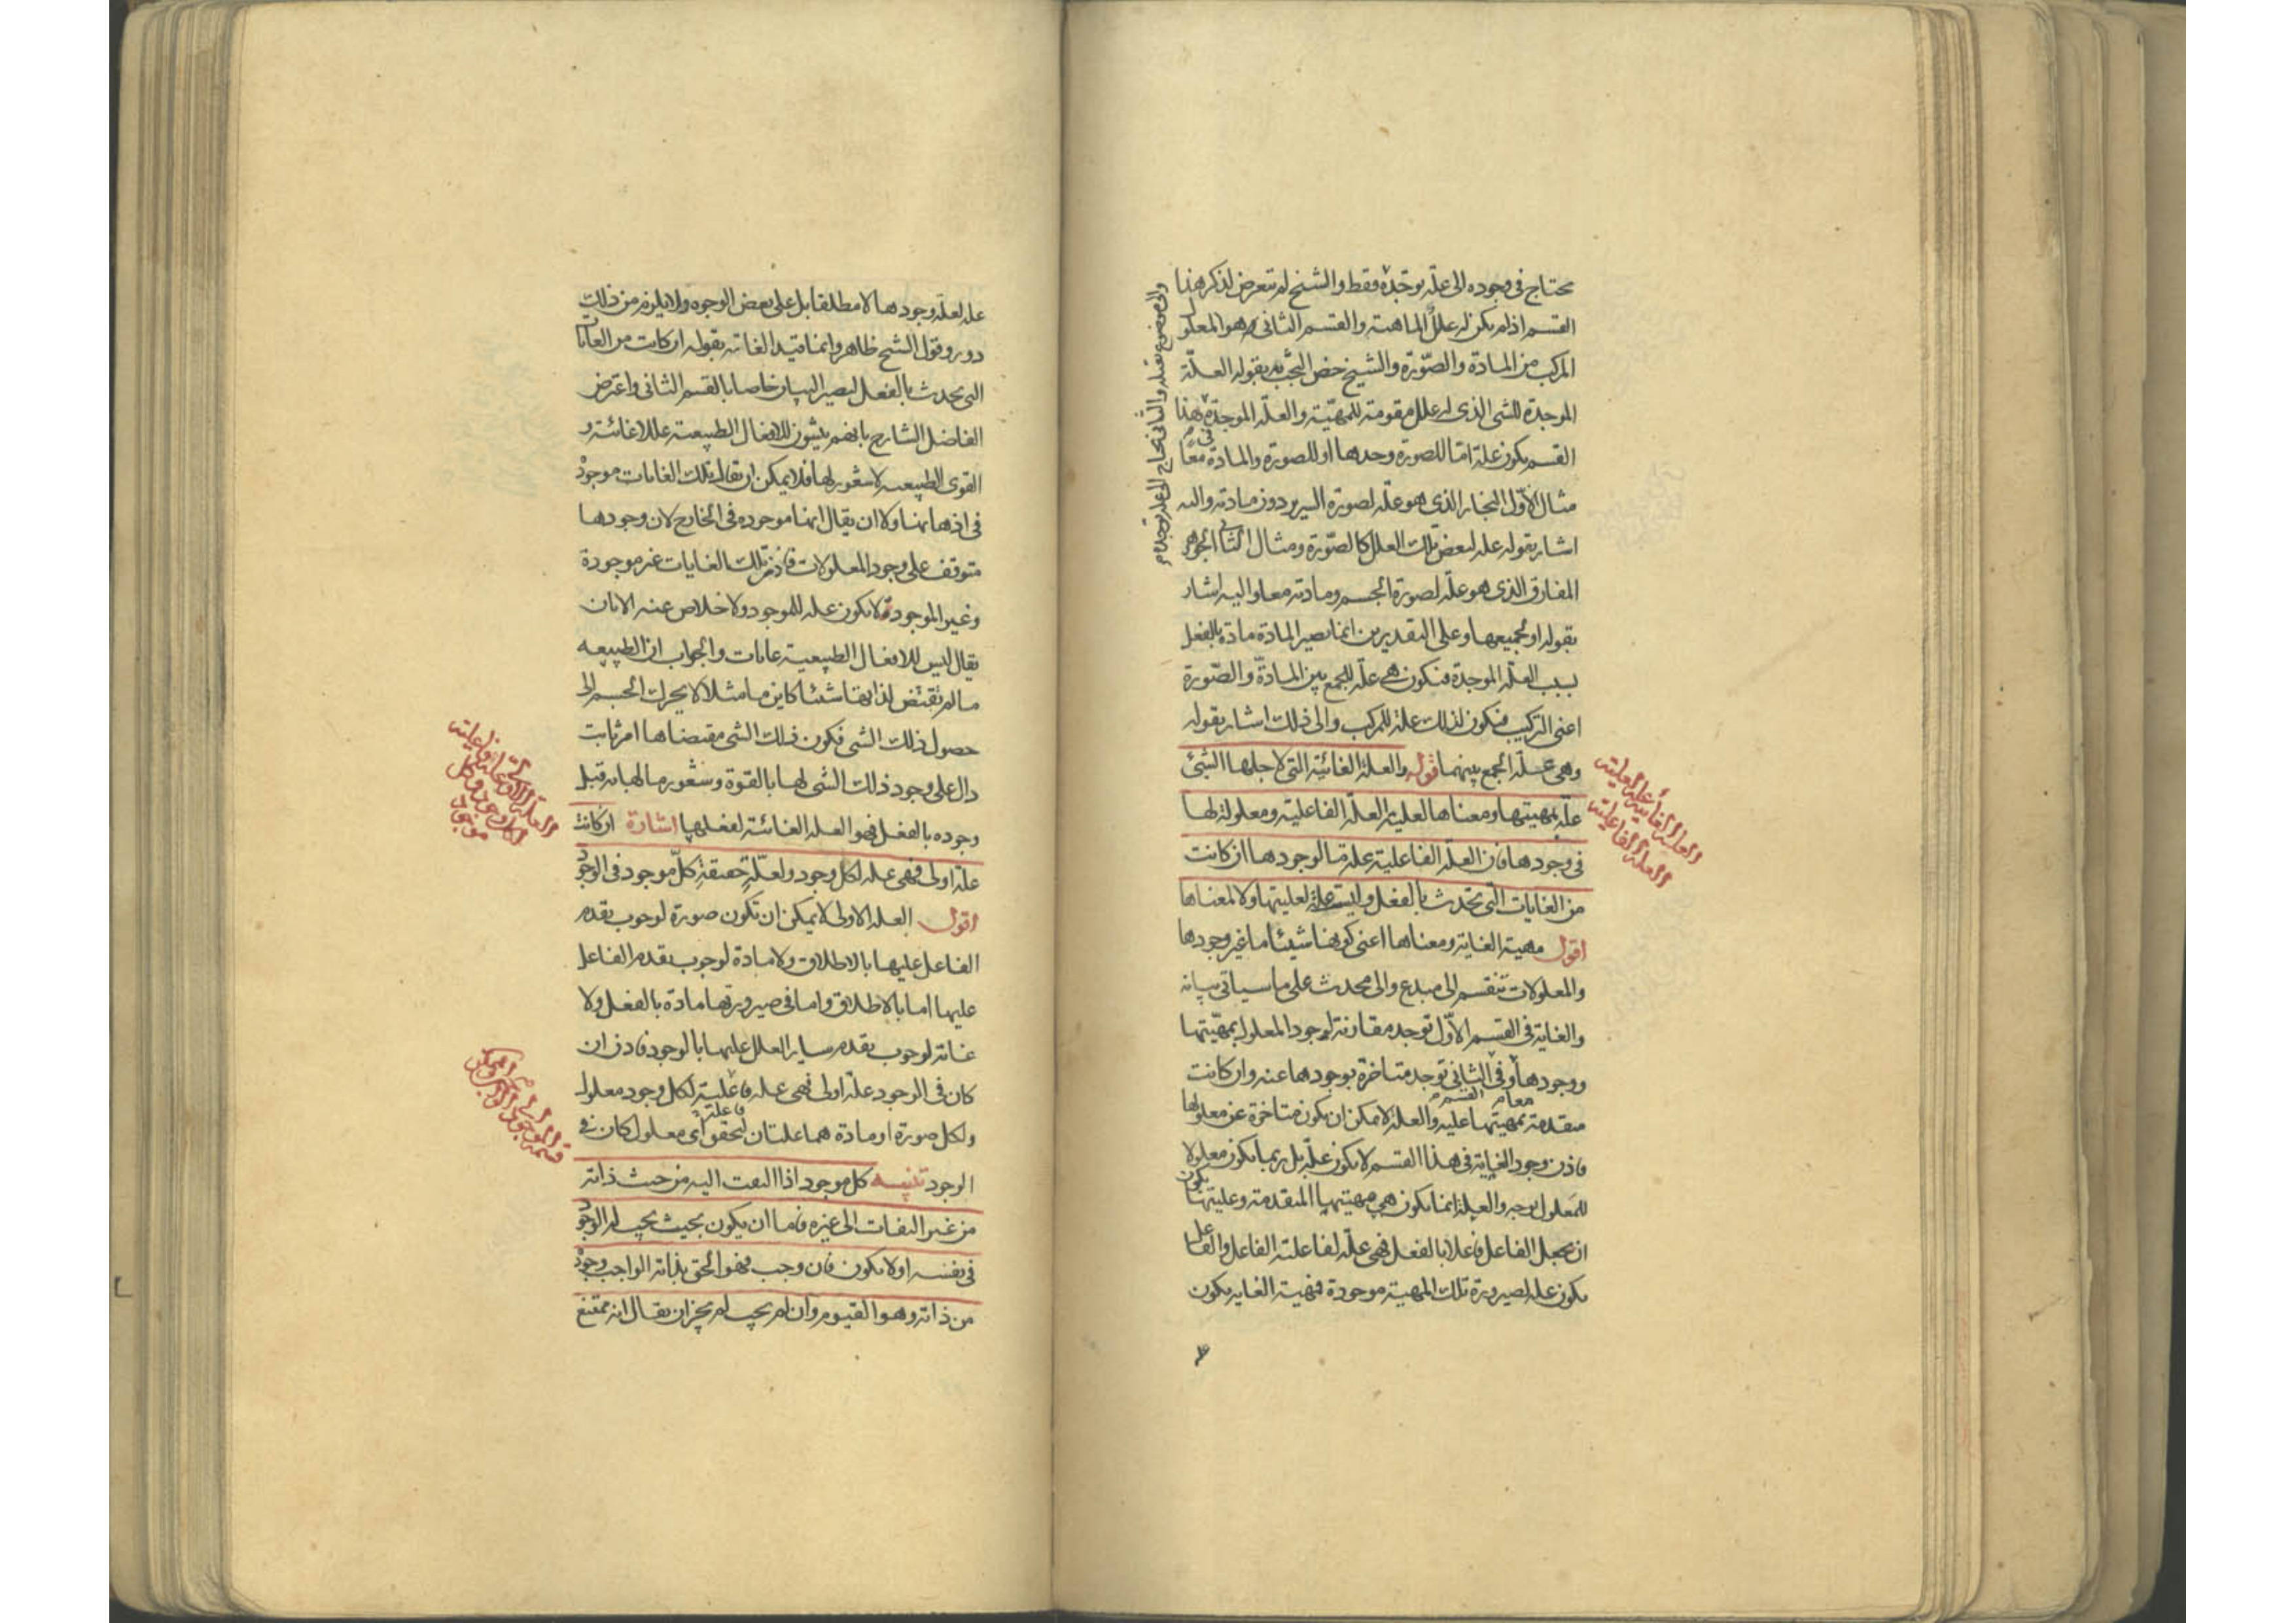 محتاج فى وجوده الى علة توجده فقط والشيخ لم يتعرض لذكر هذا
القسم اذ لم يكن له علل الماهية والقسم الثانى وهو المعلول
المركب من المادة والصورة والشيخ خص البحث به بقوله العلة
الموجدة للشى الذى له علل مقومة للمهية والعلة الموجدة فى هذا
القسم يكون علة اما للصورة وحدها او للصورة والمادة معا
مثال الاول النجار الذى هو علة لصورة السرير دون مادته واليه
اشار بقوله علة لبعض تلك العلل كالصورة ومثال الثانى الجوهر
المفارق الذى هو علة لصورة الجسم ومادته معا واليه اشار
بقوله او لجميعها وعلى التقديرين انما يصير المادة مادة بالفعل
بسبب العلة الموجدة فتكون هى علة للجمع بين المادة والصورة
اعنى التركيب فتكون لذلك علة للمركب والى ذلك اشار بقوله
وهى علة الجمع بينهما قوله والعلة الغائية التى لاجلها الشئ
علة بمهيتها ومعناها لعلية العلة الفاعلية ومعلولة لها
فى وجودها فان العلة الفاعلية علة ما لوجودها ان كانت
من الغايات التى تحدث بالفعل وليست علة لعليتها ولا لمعناها
اقول مهية الغاية ومعناها اعنى كونها شيئا ما غير وجودها
والمعلولات تنقسم الى مبدع والى محدث على ما سياتى بيانه
والغاية فى القسم الاول توجد مقارنة لوجود المعلول بمهيتها
ووجودها معا وفى القسم الثانى توجد متاخرة بوجودها عنه وان كانت
متقدمة بمهيتها عليه والعلة لا يمكن ان يكون متاخرة عن معلولها
فاذن وجود الغاية فى هذا القسم لا يكون علة بل ربما يكون معلولا
للمعلول بوجه والعلة انما يكون هى مهيتها المتقدمة وعليتها يكون
ان يجعل الفاعل فاعلا بالفعل فهى علة لفاعلية الفاعل والفاعل
يكون علة لصيرورة تلك المهية موجودة فمهية الغاية يكون
والى موضوع يقبله والثانى يحتاج الى علة توجده
العلة الغائية علة لعلية
العلة الفاعلية
علة لعلة وجودها لا مطلقا بل على بعض الوجوه ولا يلزم من ذلك
دور وقول الشيخ ظاهر وانما قيد الغاية بقوله ان كانت من الغايات
التى تحدث بالفعل ليصير البيان خاصا بالقسم الثانى واعترض
الفاضل الشارح بانهم يثبتون للافعال الطبيعية عللا غائية و
القوى الطبيعية لا شعور لها فلا يمكن ان يقال تلك الغايات موجودة
فى اذهانها ولا ان يقال انها موجودة فى الخارج لان وجودها
متوقف على وجود المعلولات فاذن تلك الغايات غير موجودة
وغير الموجود لا يكون علة للموجود ولا خلاص عنه الا بان
يقال ليس للافعال الطبيعية غايات والجواب ان الطبيعة
ما لم تقتض لذاتها شيئا كاين ما مثلا لا يحرك الجسم الى
حصول ذلك الشى فكون ذلك الشى مقتضاها امر ثابت
دال على وجود ذلك الشى لها بالقوة وشعور ما لها به قبل
وجوده بالفعل فهو العلة الغائية لفعلها اشارة ان كانت
علة اولى فهى علة لكل وجود ولعلة حقيقة كل موجود فى الوجود
اقول العلة الاولى لا يمكن ان تكون صورة لوجوب تقدم
الفاعل عليها بالاطلاق ولا مادة لوجوب تقدم الفاعل
عليها اما بالاطلاق واما فى صيرورتها مادة بالفعل ولا
غاية لوجوب تقدم ساير العلل عليها بالوجود فاذن ان
كان فى الوجود علة اولى فهى علة فاعلية لكل وجود معلول
ولكل صورة او مادة هما علتان لتحقق اى معلول كان فى
الوجود تنبيه كل موجود اذا التفت اليه من حيث ذاته
من غير التفات الى غيره فاما ان يكون بحيث يجب له الوجود
فى نفسه او لا يكون فان وجب فهو الحق بذاته الواجب وجوده
من ذاته وهو القيوم وان لم يجب لم يجز ان يقال انه ممتنع